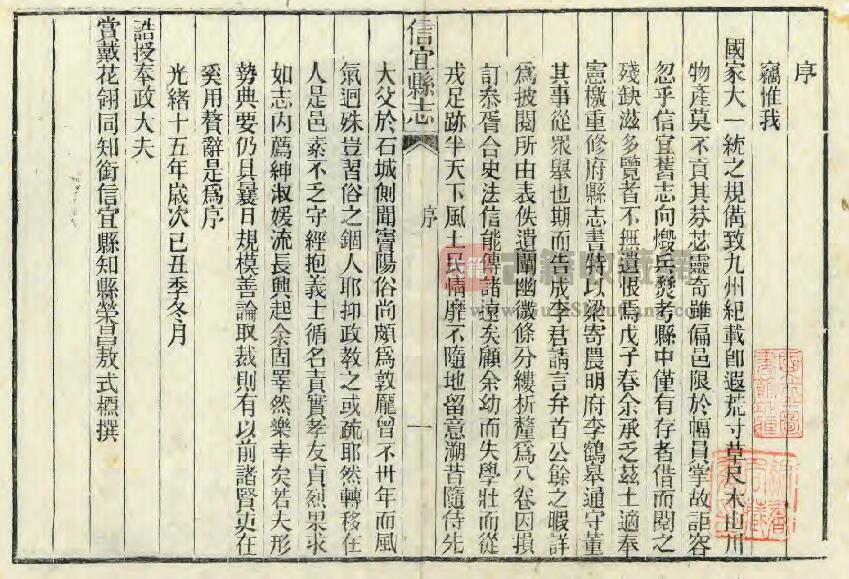 序
竊惟我
國家大一統之規備致九州紀載卽遐荒寸草尺木山川
物產莫不貢其芬苾靈奇雖偏邑限於幅員掌故詎容
忽乎信宜舊志向燬兵燹考縣中僅有存者借而閱之
殘缺滋多覽者不無遺恨焉戊子春余承乏茲土適奉
憲檄重修府縣志書特以梁寄農明府李鶴皋通守董
其事從衆舉也期而告成李君請言弁首公餘之暇詳
爲披閱所由表佚遺闡幽微條分縷析釐爲八卷因損
訂叅胥合史法信能傳諸遠矣顧余幼而失學壯而從
戎足跡半天下風土民情靡不隨地留意溯昔隨侍先
信宜縣志
序
一
大父於石城側聞竇陽俗尚頗爲敦龐曾不卅年而風
氣迥殊豈習俗之錮人耶抑政教之或疏耶然轉移在
人是邑素不乏守經抱義士循名責實孝友貞烈果求
如志內薦紳淑媛流長興起余固睪然樂幸矣若大形
勢典要仍具曩日規模善論取裁則有以前諸賢叓在
奚用贅辭是爲序
光緒十五年歲次己丑季冬月
誥授奉政大夫
賞戴花翎同知銜信宜縣知縣榮昌敖式槱撰